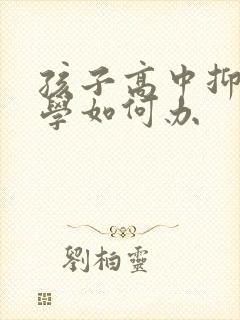 孩子高中抑
學如何办
劉柏靈